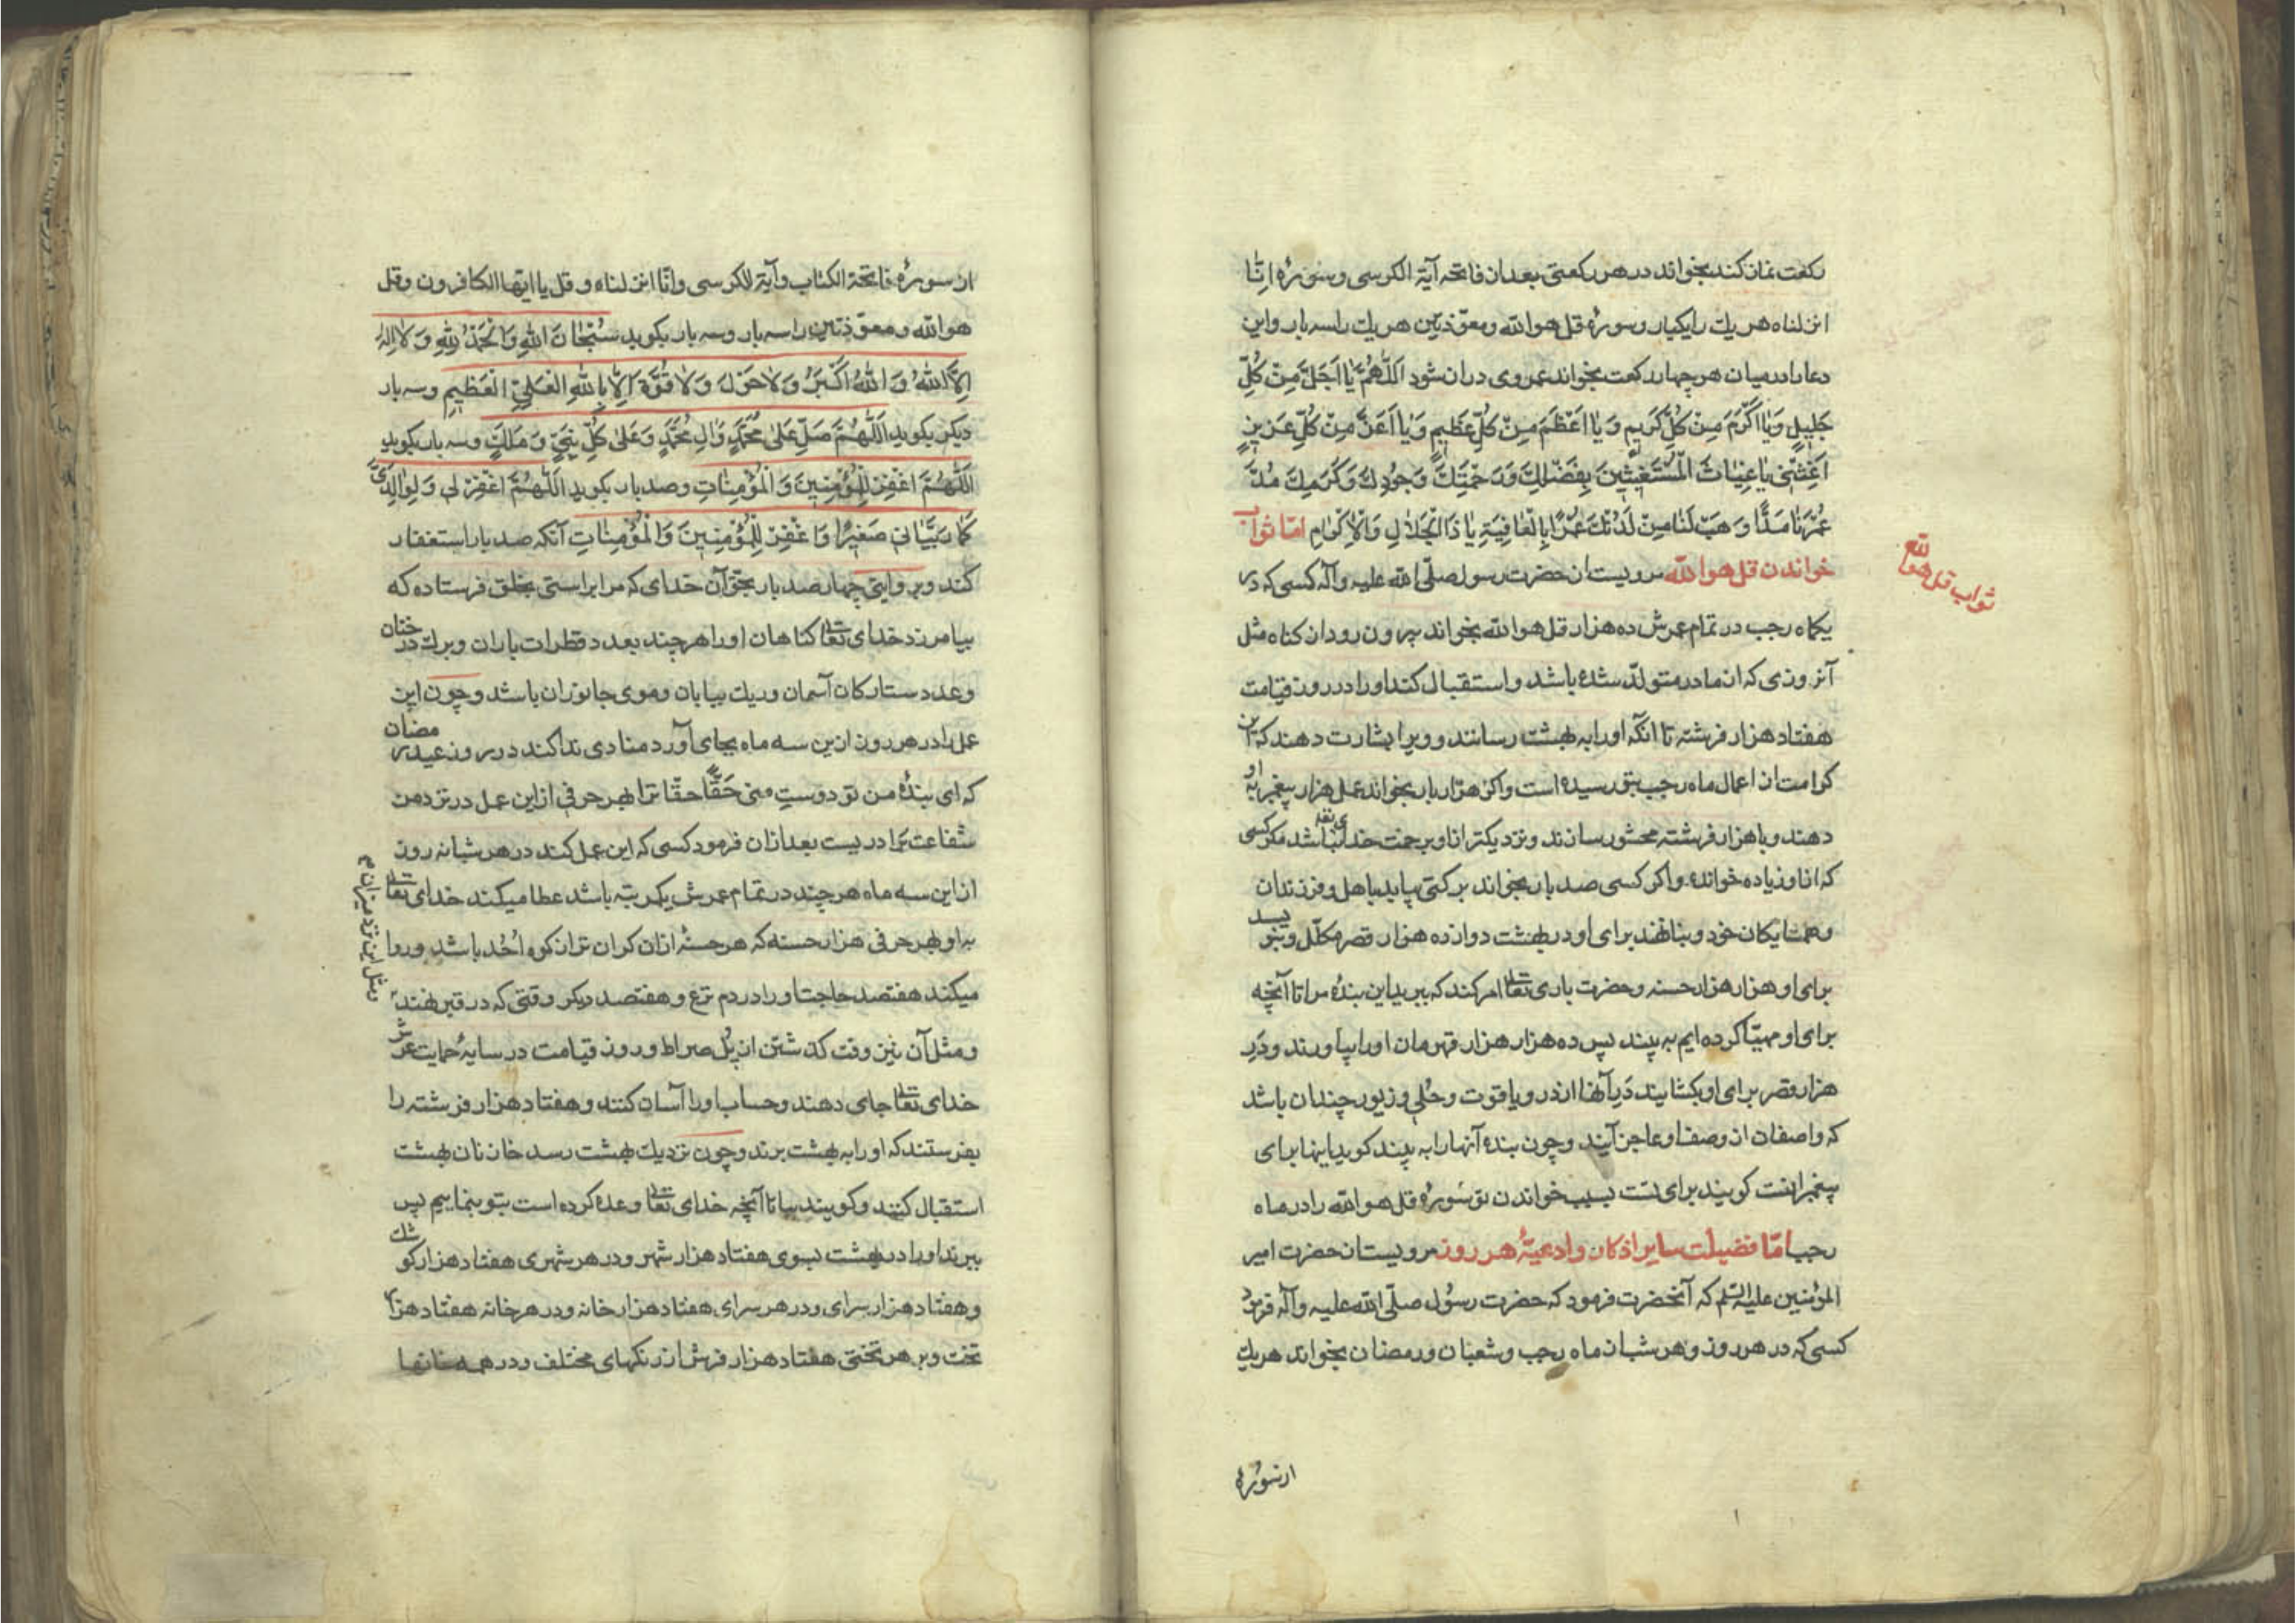 رکعت نماز کند بخواند در هر رکعتی بعد از فاتحه آیة الکرسی و سورهٔ اِنّا
انزلناه هر یك را یکبار و سورهٔ قل هو الله و معوّذتین هر یك را سه بار و این
دعا را در میان هر چهار رکعت بخواند عمر وی دراز شود اَللّٰهُمَّ یٰا اَجَلَّ مِنْ کُلِّ
جَلٖیلٍ وَیٰا اَکْرَمَ مِنْ کُلِّ کَرٖیمٍ وَ یٰا اَعْظَمَ مِنْ کُلِّ عَظٖیمٍ وَیٰا اَعَزَّ مِنْ کُلِّ عَزٖیزٍ
اَغِثْنٖی یٰا غِیٰاثَ الْمُسْتَغٖیثٖینَ بِفَضْلِكَ وَرَحْمَتِكَ وَجُودِكَ وَکَرَمِكَ مُدَّ
عُمْرَنٰا مَدًّا وَ هَبْ لَنٰا مِنْ لَدُنْكَ عُمْرًا بِالْعٰافِیَةِ یٰا ذَا الْجَلٰالِ وَالْاِکْرٰامِ امّا ثواب
خواندن قل هو الله مرویست از حضرت رسول صلّی الله علیه و آله کسی که در
ثواب قل هو الله
یکماه رجب در تمام عمرش ده هزار قل هو الله بخواند بیرون رود از کناه مثل
آنروزی که از مادر متولّد شده باشد و استقبال کند او را در روز قیامت
هفتاد هزار فرشته تا انکه او را به بهشت رسانند و ویرا بشارت دهند که این
کرامت از اعمال ماه رجب بتو رسیده است و اکر هزار بار بخواند عمل هزار پیغمبر به او
دهند و با هزار فرشته محشور سازند و نزدیکتر از او برحمت خدای تعالی نباشد مکر کسی
که از او زیاده خوانده و اکر کسی صد بار بخواند برکتی یابد با اهل و فرزندان
و همسایکان خود و بنا نهند برای او در بهشت دوازده هزار قصر مکلّل و بنویسد
برای او هزار هزار حسنه و حضرت باری تعالی امر کند که ببرید این بندهٔ مرا تا آنچه
برای او مهیّا کرده ایم به بیند پس ده هزار هزار قهرمان او را بیاورند و دَرِ
هزار قصر برای او بکشایند دَرِ آنها از در و یاقوت و حُلی و زیور چندان باشد
که واصفان از وصف او عاجز آیند و چون بنده آنها را به بیند کوید اینها برای
پیغمبرانست کویند برای تست بسبب خواندن تو سورهٔ قل هو الله را در ماه
رجب امّا فضیلت سایر اذکار و ادعیهٔ هر روز مرویست از حضرت امیر
المؤمنین علیه السّلم که آنحضرت فرمود که حضرت رسول صلّی الله علیه و آله فرمود
کسی که در هر روز و هر شب از ماه رجب و شعبان و رمضان بخواند هر یك
از سورهٔ
از سورهٔ فاتحة الکتاب و آیة الکرسی و انّا انزلناه و قل یا ایّها الکافرون و قل
هو الله و معوّذتین را سه بار و سه بار بکوید سُبْحٰانَ اللهِ وَالْحَمْدُ لِلّٰهِ وَلٰا اِلٰهَ
اِلَّا اللهُ وَ اللهُ اَکْبَرُ وَلٰا حَوْلَ وَلٰا قُوَّةَ اِلّٰا بِاللهِ الْعَلِیِّ الْعَظٖیمِ وسه بار
دیکر بکوید اَللّٰهُمَّ صَلِّ عَلیٰ مُحَمَّدٍ وَاٰلِ مُحَمَّدٍ وَعَلیٰ کُلِّ نَبِیٍّ وَ مَلَكٍ وسه بار بکوید
اَللّٰهُمَّ اغْفِرْ لِلْمُؤْمِنٖینَ وَ الْمُؤْمِنٰاتِ وصد بار بکوید اَللّٰهُمَّ اغْفِرْ لٖی وَلِوٰالِدَیَّ
کَمٰا رَبَّیٰانٖی صَغٖیرًا وَاغْفِرْ لِلْمُؤْمِنٖینَ وَالْمُؤْمِنٰاتِ آنکه صد بار استغفار
کند و بروایتی چهار صد بار بحقّ آن خدای که مرا براستی بخلق فرستاده که
بیامرزد خدای تعالی کناهان او را هر چند بعدد قطرات باران و برك درختان
و عدد ستارکان آسمان و ریك بیابان و موی جانوران باشد و چون این
عمل را در هر روز ازین سه ماه بجای آورد منادی ندا کند در روز عید رمضان
که ای بندهٔ من تو دوستِ منی حَقًّا حقّا ترا بهر حرفی از این عمل در نزد من
شفاعت ترا دریست بعد ازان فرمود کسی که این عمل کند در هر شبانه روز
از این سه ماه هر چند در تمام عمرش یکمرتبه باشد عطا میکند خدای تعالی
به او بهر حرفی هزار حسنه که هر حسنهٔ ازان کران تر از کوه اُحُد باشد و روا
ومثل این نزد میزان م
میکند هفتصد حاجت او را در دم نزع و هفتصد دیکر وقتی که در قبر نهند
و مثل آن نیز وقت کذشتن از پُل صراط و روز قیامت در سایهٔ حمایت عرش
خدای تعالی جای دهند و حساب او را آسان کنند و هفتاد هزار فرشته را
بفرستند که او را به بهشت برند و چون نزدیك بهشت رسد خازنان بهشت
استقبال کنند و کویند بیا تا آنچه خدای تعالی وعده کرده است بتو بنماییم پس
ببرند او را در بهشت بسوی هفتاد هزار شهر و در هر شهری هفتاد هزار کوشك
و هفتاد هزار سرای و در هر سرای هفتاد هزار خانه و در هر خانه هفتاد هزار
تخت و بر هر تختی هفتاد هزار فرش از رنکهای مختلف و در همه